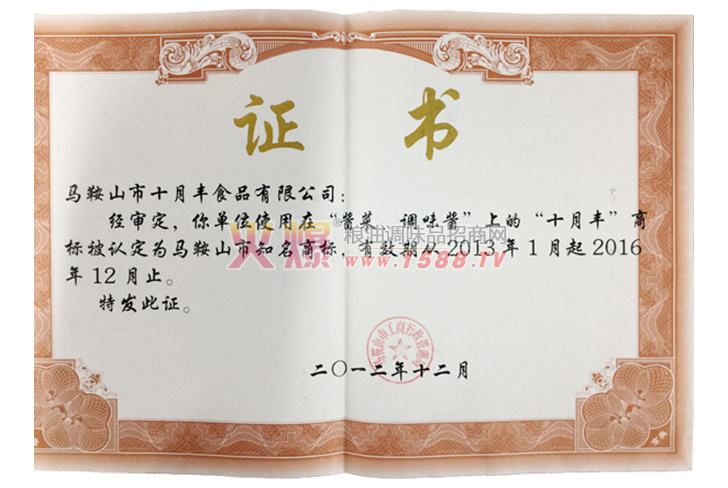 证 书
马鞍山市十月丰食品有限公司:
经审定,你单位使用在“酱菜、调味酱”上的“十月丰”商
标被认定为马鞍山市知名商标,有效期从2013年1月起2016
年12月止。
特发此证。
火爆®粮油调味品招商网
www.1588.TV
马鞍山市工商行政管理局
二〇一二年十二月